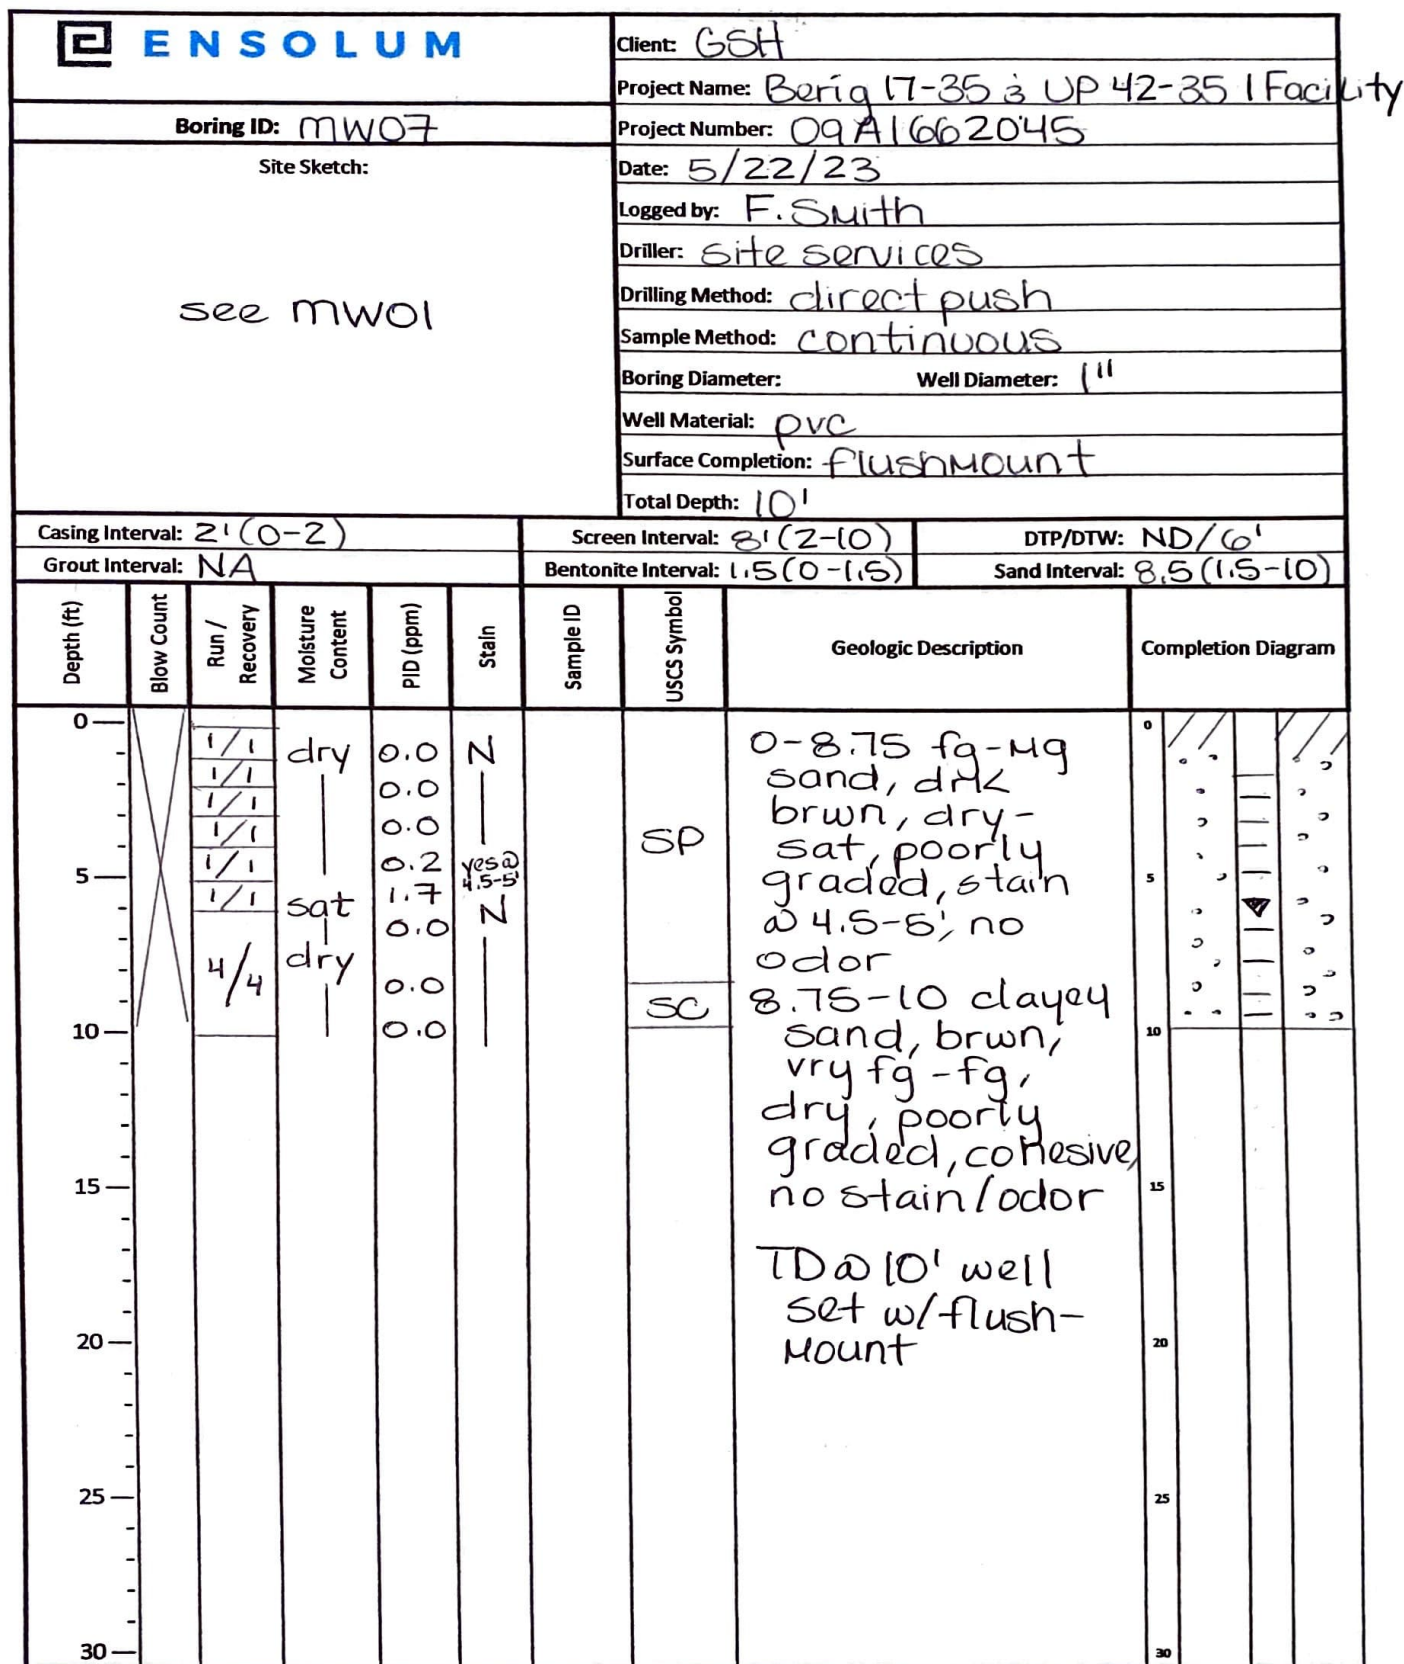 ENSOLUM
Client: GSH
Project Name: Berig 17-35 & UP 42-35 | Facility
Boring ID: MW07
Project Number: 09A1662045
Site Sketch:
see MW01
Date: 5/22/23
Logged by: F. Smith
Driller: site services
Drilling Method: direct push
Sample Method: continuous
Boring Diameter: Well Diameter: 1"
Well Material: pvc
Surface Completion: flushmount
Total Depth: 10'
Casing Interval: 2' (0-2) Screen Interval: 8' (2-10) DTP/DTW: ND/6'
Grout Interval: NA Bentonite Interval: 1.5 (0-1.5) Sand Interval: 8.5 (1.5-10)
Depth (ft)
Blow Count
Run / Recovery
Moisture Content
PID (ppm)
Stain
Sample ID
USCS Symbol
Geologic Description
Completion Diagram
0
5
10
15
20
25
30
1/1
1/1
1/1
1/1
1/1
1/1
4/4
dry
sat
dry
0.0
0.0
0.0
0.2
1.7
0.0
0.0
0.0
N
yes@
4.5-5'
N
SP
SC
0-8.75 fg-mg
sand, drk
brwn, dry-
sat, poorly
graded, stain
@ 4.5-5', no
odor
8.75-10 clayey
sand, brwn,
vry fg-fg,
dry, poorly
graded, cohesive,
no stain/odor
TD@10' well
set w/flush-
mount
0
5
10
15
20
25
30